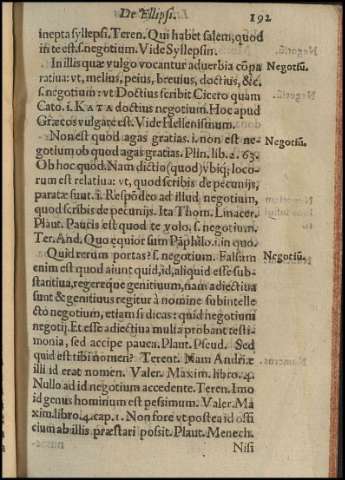 De Ellipsi. 192
inepta syllepsi. Teren. Qui habet salem, quod
in te est. s. negotium. Vide Syllepsin.
In illis quæ vulgo vocantur aduerbia cōpa Negotiū.
ratiua: vt, melius, peius, breuius, doctius, &c.
s. negotium: vt Doctius scribit Cicero quam
Cato. i. KATA doctius negotium. Hoc apud
Græcos vulgare est. Vide Hellenismum.
Non est quod agas gratias. i. non est ne- Negotiū.
gotium ob quod agas gratias. Plin. lib. 2. 63.
Ob hoc quod. Nam dictio (quod) vbiq; loco-
rum est relatiua: vt, quod scribis de pecunijs,
paratæ sunt. i. Respōdeo ad illud negotium,
quod scribis de pecunijs. Ita Thom. Linacer.
Plaut. Paucis est quod te volo. s. negotium.
Ter. And. Quo equior sum Pāphilo. i. in quo.
Quid rerum portas? s. negotium. Falsum Negotiū.
enim est quod aiunt quid, id, aliquid esse sub-
stantiua, regereque genitiuum, nam adiectiua
sunt & genitiuus regitur à nomine subintelle
cto negotium, etiam si dicas: quid negotium
negotij. Et esse adiectiua multa probant testi-
monia, sed accipe pauca. Plaut. Pseud. Sed
quid est tibi nomen? Terent. Nam Andriæ
illi id erat nomen. Valer. Maxim. libro. 4.
Nullo ad id negotium accedente. Teren. Imo
id genus hominum est pessimum. Valer. Ma
xim. libro. 4. cap. 1. Non fore vt postea id offi
cium ab illis præstari possit. Plaut. Menech.
Nisi